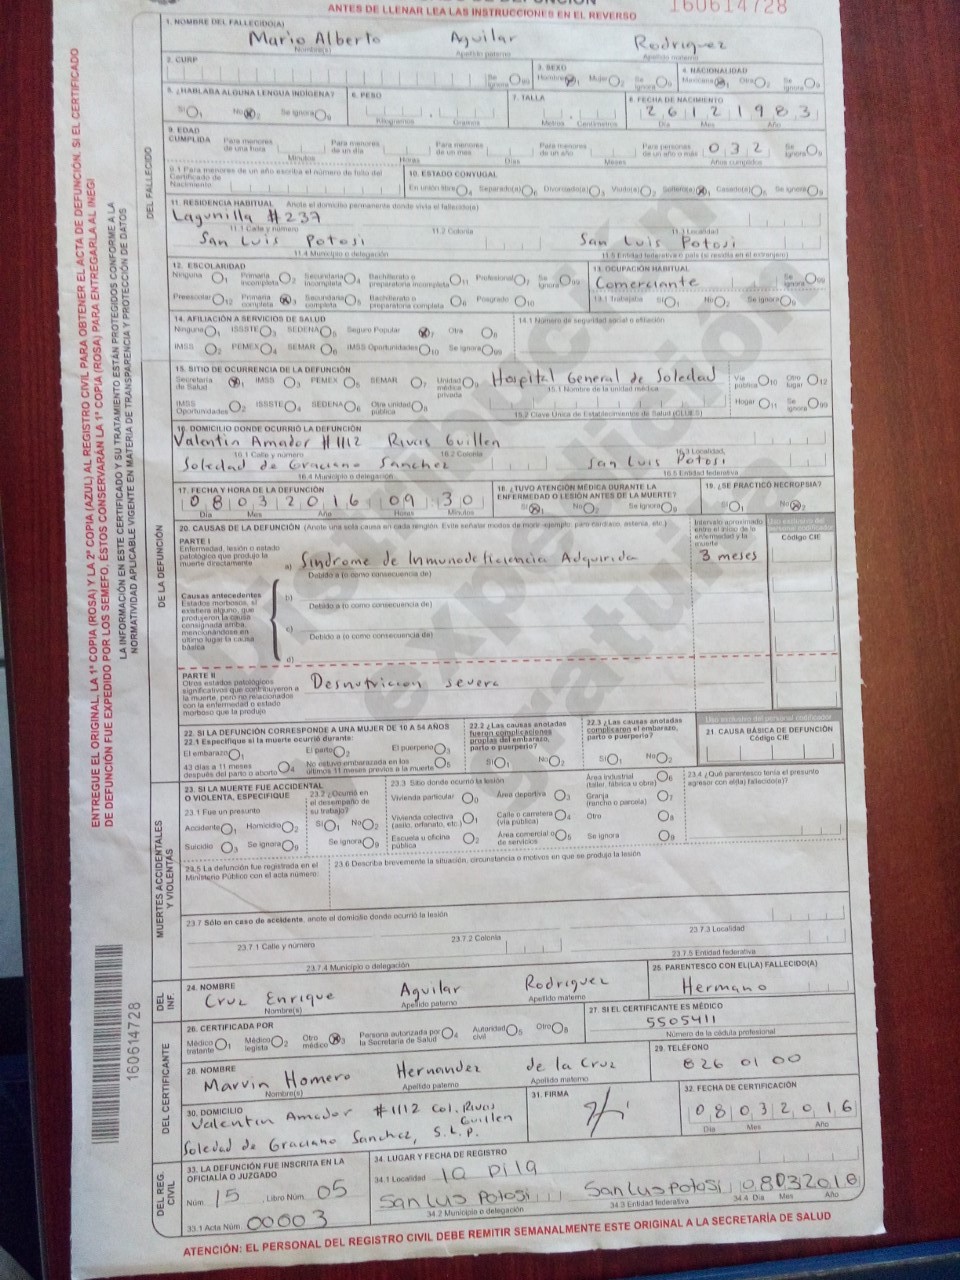 ANTES DE LLENAR LEA LAS INSTRUCCIONES EN EL REVERSO
160614728
1. NOMBRE DEL FALLECIDO(A)
Mario Alberto Aguilar Rodriguez
Nombre(s) Apellido paterno Apellido materno
2. CURP Se ignora 99 3. SEXO Hombre 1 Mujer 2 Se ignora 9 4. NACIONALIDAD Mexicana 1 Otra 2 Se ignora 9
5. ¿HABLABA ALGUNA LENGUA INDÍGENA? 6. PESO 7. TALLA 8. FECHA DE NACIMIENTO
SI 1 No 2 Se ignora 9 Kilogramos Gramos Metros Centímetros 2 6 1 2 1 9 8 3
Día Mes Año
9. EDAD CUMPLIDA Para menores de una hora Minutos Para menores de un día Horas Para menores de un mes Días Para menores de un año Meses Para personas de un año o más 0 3 2 Años cumplidos Se ignora 9
9.1 Para menores de un año escriba el número de folio del Certificado de Nacimiento
10. ESTADO CONYUGAL
En unión libre Separado(a) Divorciado(a) Viudo(a) Soltero(a) Casado(a) Se ignora 9
11. RESIDENCIA HABITUAL Anote el domicilio permanente donde vivía el fallecido(a)
Lagunilla #237
11.1 Calle y número 11.2 Colonia 11.3 Localidad
San Luis Potosi San Luis Potosi
11.4 Municipio o delegación 11.5 Entidad federativa o país (si residía en el extranjero)
12. ESCOLARIDAD 13. OCUPACIÓN HABITUAL
Ninguna 1 Primaria incompleta 2 Secundaria incompleta 4 Bachillerato o preparatoria incompleta 11 Profesional 7 Se ignora Comerciante Se ignora
Preescolar 12 Primaria completa 3 Secundaria completa 5 Bachillerato o preparatoria completa 6 Posgrado 10 13.1 Trabajaba SI 1 No 2 Se ignora 9
14. AFILIACIÓN A SERVICIOS DE SALUD 14.1 Número de seguridad social o afiliación
Ninguna 1 ISSSTE 3 SEDENA 5 Seguro Popular 7 Otra 8
IMSS 2 PEMEX 4 SEMAR 6 IMSS Oportunidades 10 Se ignora 99
15. SITIO DE OCURRENCIA DE LA DEFUNCIÓN
Secretaría de Salud 1 IMSS 3 PEMEX 5 SEMAR 7 Unidad médica privada 9 Hospital General de Soledad Vía pública 10 Otro lugar 12
15.1 Nombre de la unidad médica
IMSS Oportunidades 2 ISSSTE 4 SEDENA 6 Otra unidad pública 8 15.2 Clave Única de Establecimientos de Salud (CLUES) Hogar 11 Se ignora 99
16. DOMICILIO DONDE OCURRIÓ LA DEFUNCIÓN
Valentin Amador #1112 Rivas Guillen
16.1 Calle y número 16.2 Colonia 16.3 Localidad
Soledad de Graciano Sanchez San Luis Potosi
16.4 Municipio o delegación 16.5 Entidad federativa
17. FECHA Y HORA DE LA DEFUNCIÓN 18. ¿TUVO ATENCIÓN MÉDICA DURANTE LA ENFERMEDAD O LESIÓN ANTES DE LA MUERTE? 19. ¿SE PRACTICÓ NECROPSIA?
0 8 0 3 2 0 1 6 0 9 3 0 SI 1 No 2 Se ignora 9 SI 1 No 2
Día Mes Año Horas Minutos
20. CAUSAS DE LA DEFUNCIÓN (Anote una sola causa en cada renglón. Evite señalar modos de morir ejemplo: paro cardiaco, astenia, etc.) Intervalo aproximado entre el inicio de la enfermedad y la muerte Código CIE
PARTE I
Enfermedad, lesión o estado patológico que produjo la muerte directamente
a) Sindrome de Inmunodeficiencia Adquirida 3 meses
Debido a (o como consecuencia de)
Causas antecedentes
Estados morbosos, si existiera alguno, que produjeron la causa consignada arriba, mencionándose en último lugar la causa básica
b)
Debido a (o como consecuencia de)
c)
Debido a (o como consecuencia de)
d)
PARTE II
Otros estados patológicos significativos que contribuyeron a la muerte, pero no relacionados con la enfermedad o estado morboso que la produjo
Desnutricion severa
22. SI LA DEFUNCIÓN CORRESPONDE A UNA MUJER DE 10 A 54 AÑOS
22.1 Especifique si la muerte ocurrió durante:
El embarazo 1 El parto 2 El puerperio 3
43 días a 11 meses después del parto o aborto 4 No estuvo embarazada en los últimos 11 meses previos a la muerte 5
22.2 ¿Las causas anotadas fueron complicaciones propias del embarazo, parto o puerperio? SI 1 No 2
22.3 ¿Las causas anotadas complicaron el embarazo, parto o puerperio? SI 1 No 2
Uso exclusivo del personal codificador
21. CAUSA BÁSICA DE DEFUNCIÓN
Código CIE
23. SI LA MUERTE FUE ACCIDENTAL O VIOLENTA, ESPECIFIQUE
23.1 Fue un presunto
Accidente 1 Homicidio 2
Suicidio 3 Se ignora 9
23.2 ¿Ocurrió en el desempeño de su trabajo?
SI 1 No 2
Se ignora 9
23.3 Sitio donde ocurrió la lesión
Vivienda particular 0 Área deportiva 3 Área industrial (taller, fábrica u obra) 6
Vivienda colectiva (asilo, orfanato, etc.) 1 Calle o carretera (vía pública) 4 Granja (rancho o parcela) 7
Escuela u oficina pública 2 Área comercial o de servicios 5 Otro 8
Se ignora 9
23.4 ¿Qué parentesco tenía el presunto agresor con el(la) fallecido(a)?
23.5 La defunción fue registrada en el Ministerio Público con el acta número:
23.6 Describa brevemente la situación, circunstancia o motivos en que se produjo la lesión
23.7 Sólo en caso de accidente, anote el domicilio donde ocurrió la lesión
23.7.1 Calle y número 23.7.2 Colonia 23.7.3 Localidad
23.7.4 Municipio o delegación 23.7.5 Entidad federativa
24. NOMBRE 25. PARENTESCO CON EL(LA) FALLECIDO(A)
Cruz Enrique Aguilar Rodriguez Hermano
Nombre(s) Apellido paterno Apellido materno
26. CERTIFICADA POR 27. SI EL CERTIFICANTE ES MÉDICO
5505411
Médico tratante 1 Médico legista 2 Otro médico 3 Persona autorizada por la Secretaría de Salud 4 Autoridad civil 5 Otro 8 Número de la cédula profesional
28. NOMBRE 29. TELÉFONO
Marvin Homero Hernandez de la Cruz 826 01 00
Nombre(s) Apellido paterno Apellido materno
30. DOMICILIO 31. FIRMA 32. FECHA DE CERTIFICACIÓN
Valentin Amador #1112 Col. Rivas Guillen
Soledad de Graciano Sanchez, S.L.P. 0 8 0 3 2 0 1 6
Día Mes Año
33. LA DEFUNCIÓN FUE INSCRITA EN LA OFICIALÍA O JUZGADO
Núm 15 Libro Núm. 05
33.1 Acta Núm 00003
34. LUGAR Y FECHA DE REGISTRO
34.1 Localidad la pila
San Luis Potosi San Luis Potosi 08032016
34.2 Municipio o delegación 34.3 Entidad federativa 34.4 Día Mes Año
ATENCIÓN: EL PERSONAL DEL REGISTRO CIVIL DEBE REMITIR SEMANALMENTE ESTE ORIGINAL A LA SECRETARÍA DE SALUD
ENTREGUE EL ORIGINAL, LA 1ª COPIA (ROSA) Y LA 2ª COPIA (AZUL) AL REGISTRO CIVIL PARA OBTENER EL ACTA DE DEFUNCIÓN. SI EL CERTIFICADO
DE DEFUNCIÓN FUE EXPEDIDO POR LOS SEMEFO, ÉSTOS CONSERVARÁN LA 1ª COPIA (ROSA) PARA ENTREGARLA AL INEGI
LA INFORMACIÓN EN ESTE CERTIFICADO Y SU TRATAMIENTO ESTÁN PROTEGIDOS CONFORME A LA
NORMATIVIDAD APLICABLE VIGENTE EN MATERIA DE TRANSPARENCIA Y PROTECCIÓN DE DATOS
DEL FALLECIDO
DE LA DEFUNCIÓN
MUERTES ACCIDENTALES Y VIOLENTAS
DEL INF.
DEL CERTIFICANTE
DEL REG. CIVIL
160614728
Distribución y expedición gratuita